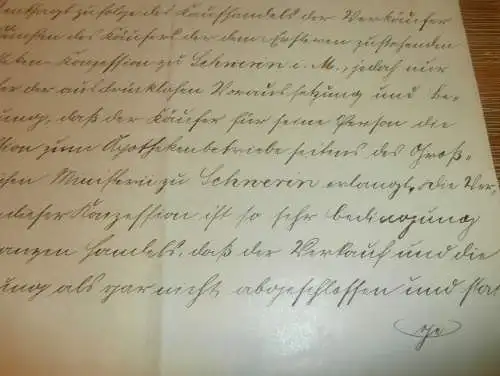 entsagt zufolge des Kaufhandels der Verkäufer
Gunsten des Käufers der dem Ersteren zustehenden
theken-Konzession zu Schwerin i. M., jedoch nur
ter der ausdrücklichen Voraussetzung und Be-
gung, daß der Käufer für seine Person die
sion zum Apothekenbetriebe seitens des Groß-
ichen Ministerii zu Schwerin erlangt. Die Ver-
dieser Konzession ist so sehr Bedingung
ganzen Handels, daß der Verkauf und die
ung als gar nicht abgeschlossen und stat
ge